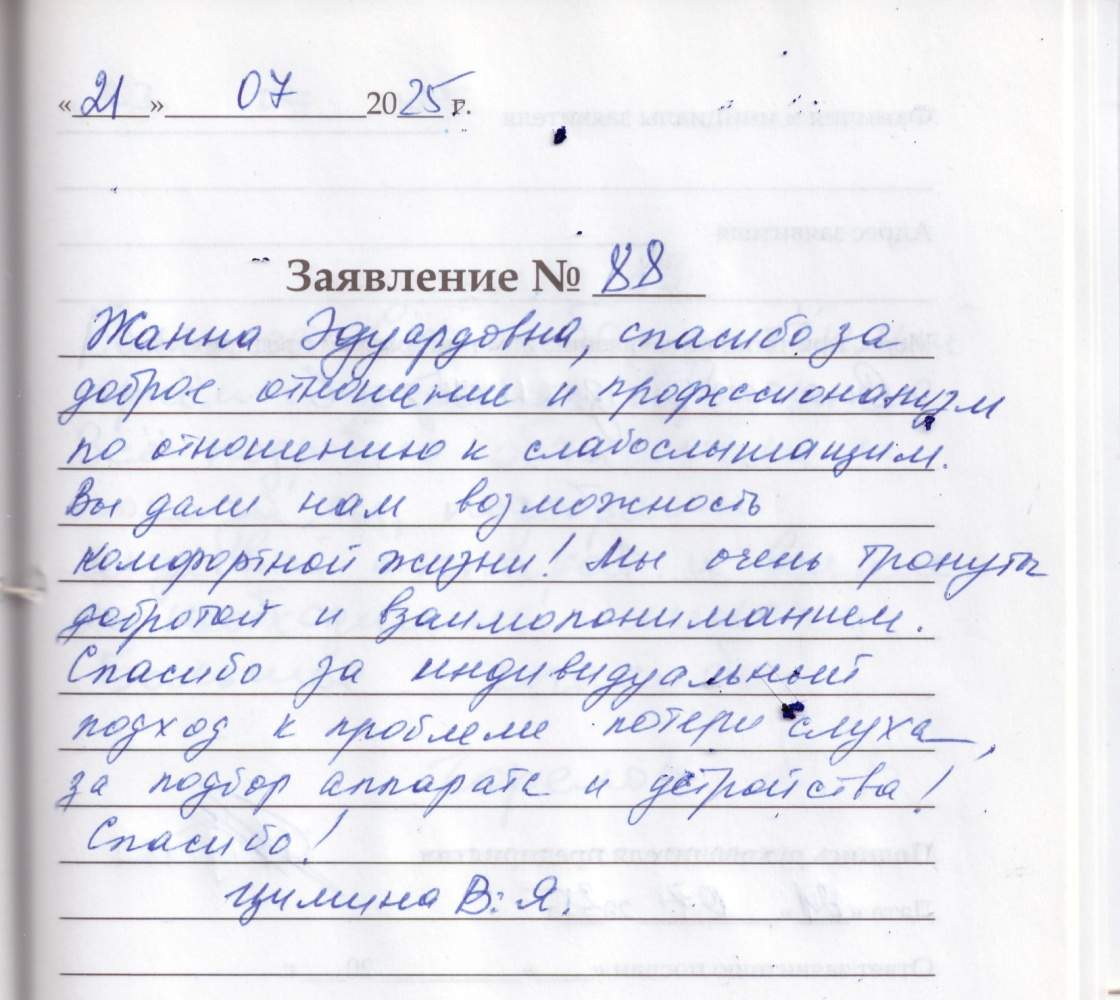 «21» 07 2025 г.
Заявление № 88
Жанна Эдуардовна, спасибо за
доброе отношение и профессионализм
по отношению к слабослышащим.
Вы дали нам возможность
комфортной жизни! Мы очень тронуты
добротой и взаимопониманием.
Спасибо за индивидуальный
подход к проблеме потери слуха,
за подбор аппарата и устройства!
Спасибо!
Цимина В. Я.